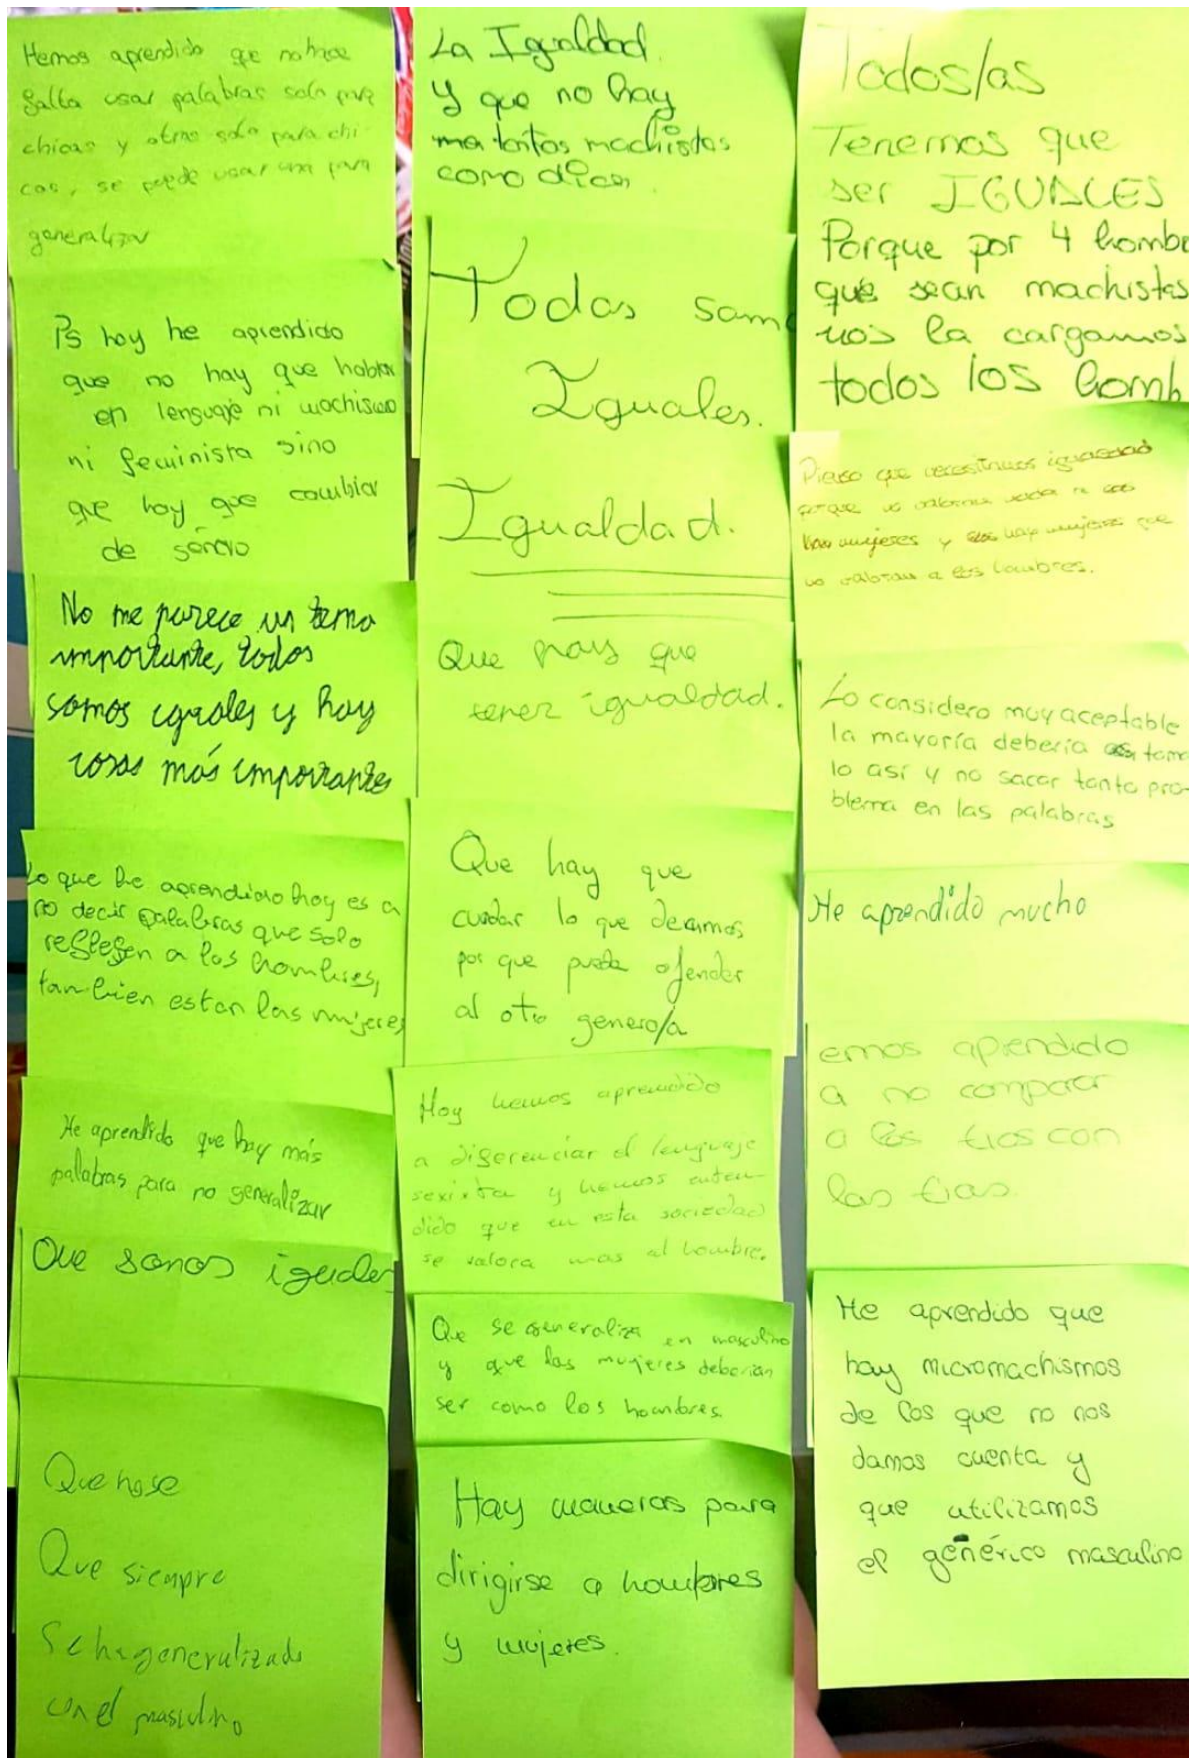 Hemos aprendido que no hace
falta usar palabras solo para
chicas y otras solo para chi-
cos, se puede usar una para
generalizar
Ps hoy he aprendido
que no hay que hablar
en lenguaje ni machismo
ni feminista sino
que hay que cambiar
de
No me parece un tema
importante, todos
somos iguales y hay
cosas más importantes
Lo que he aprendido hoy es a
no decir palabras que solo
reflegen a los hombres,
tambien estan las mujeres
He aprendido que hay más
palabras para no generalizar
Que somos iguales
Que nose
Que siempre
Se ha generalizado
con el masculino
La Igualdad.
y que no hay
tantos machistas
como dicen.
Todos som
Iguales.
Igualdad.
Que hay que
tener igualdad.
Que hay que
cuidar lo que decimos
por que puede ofender
al otro genero/a
Hoy hemos aprendido
a diferenciar el lenguaje
sexista y hemos enten-
dido que en esta sociedad
se valora mas al hombre.
Que se generaliza en masculino
y que las mujeres deberian
ser como los hombres.
Hay maneras para
dirigirse a hombres
y mujeres.
Todos/as
Tenemos que
ser IGUALES
Porque por 4 hombre
que sean machistas
nos la cargamos
todos los homb
Pienso que necesitamos igualdad
porque no valoran nada a
las mujeres y hay mujeres que
no valoran a los hombres.
Lo considero muy aceptable
la mayoría debería toma
lo así y no sacar tanto pro-
blema en las palabras
He aprendido mucho
emos aprendido
a no comparar
a los tios con
las tias.
He aprendido que
hay micromachismos
de los que no nos
damos cuenta y
que utilizamos
el genérico masculino